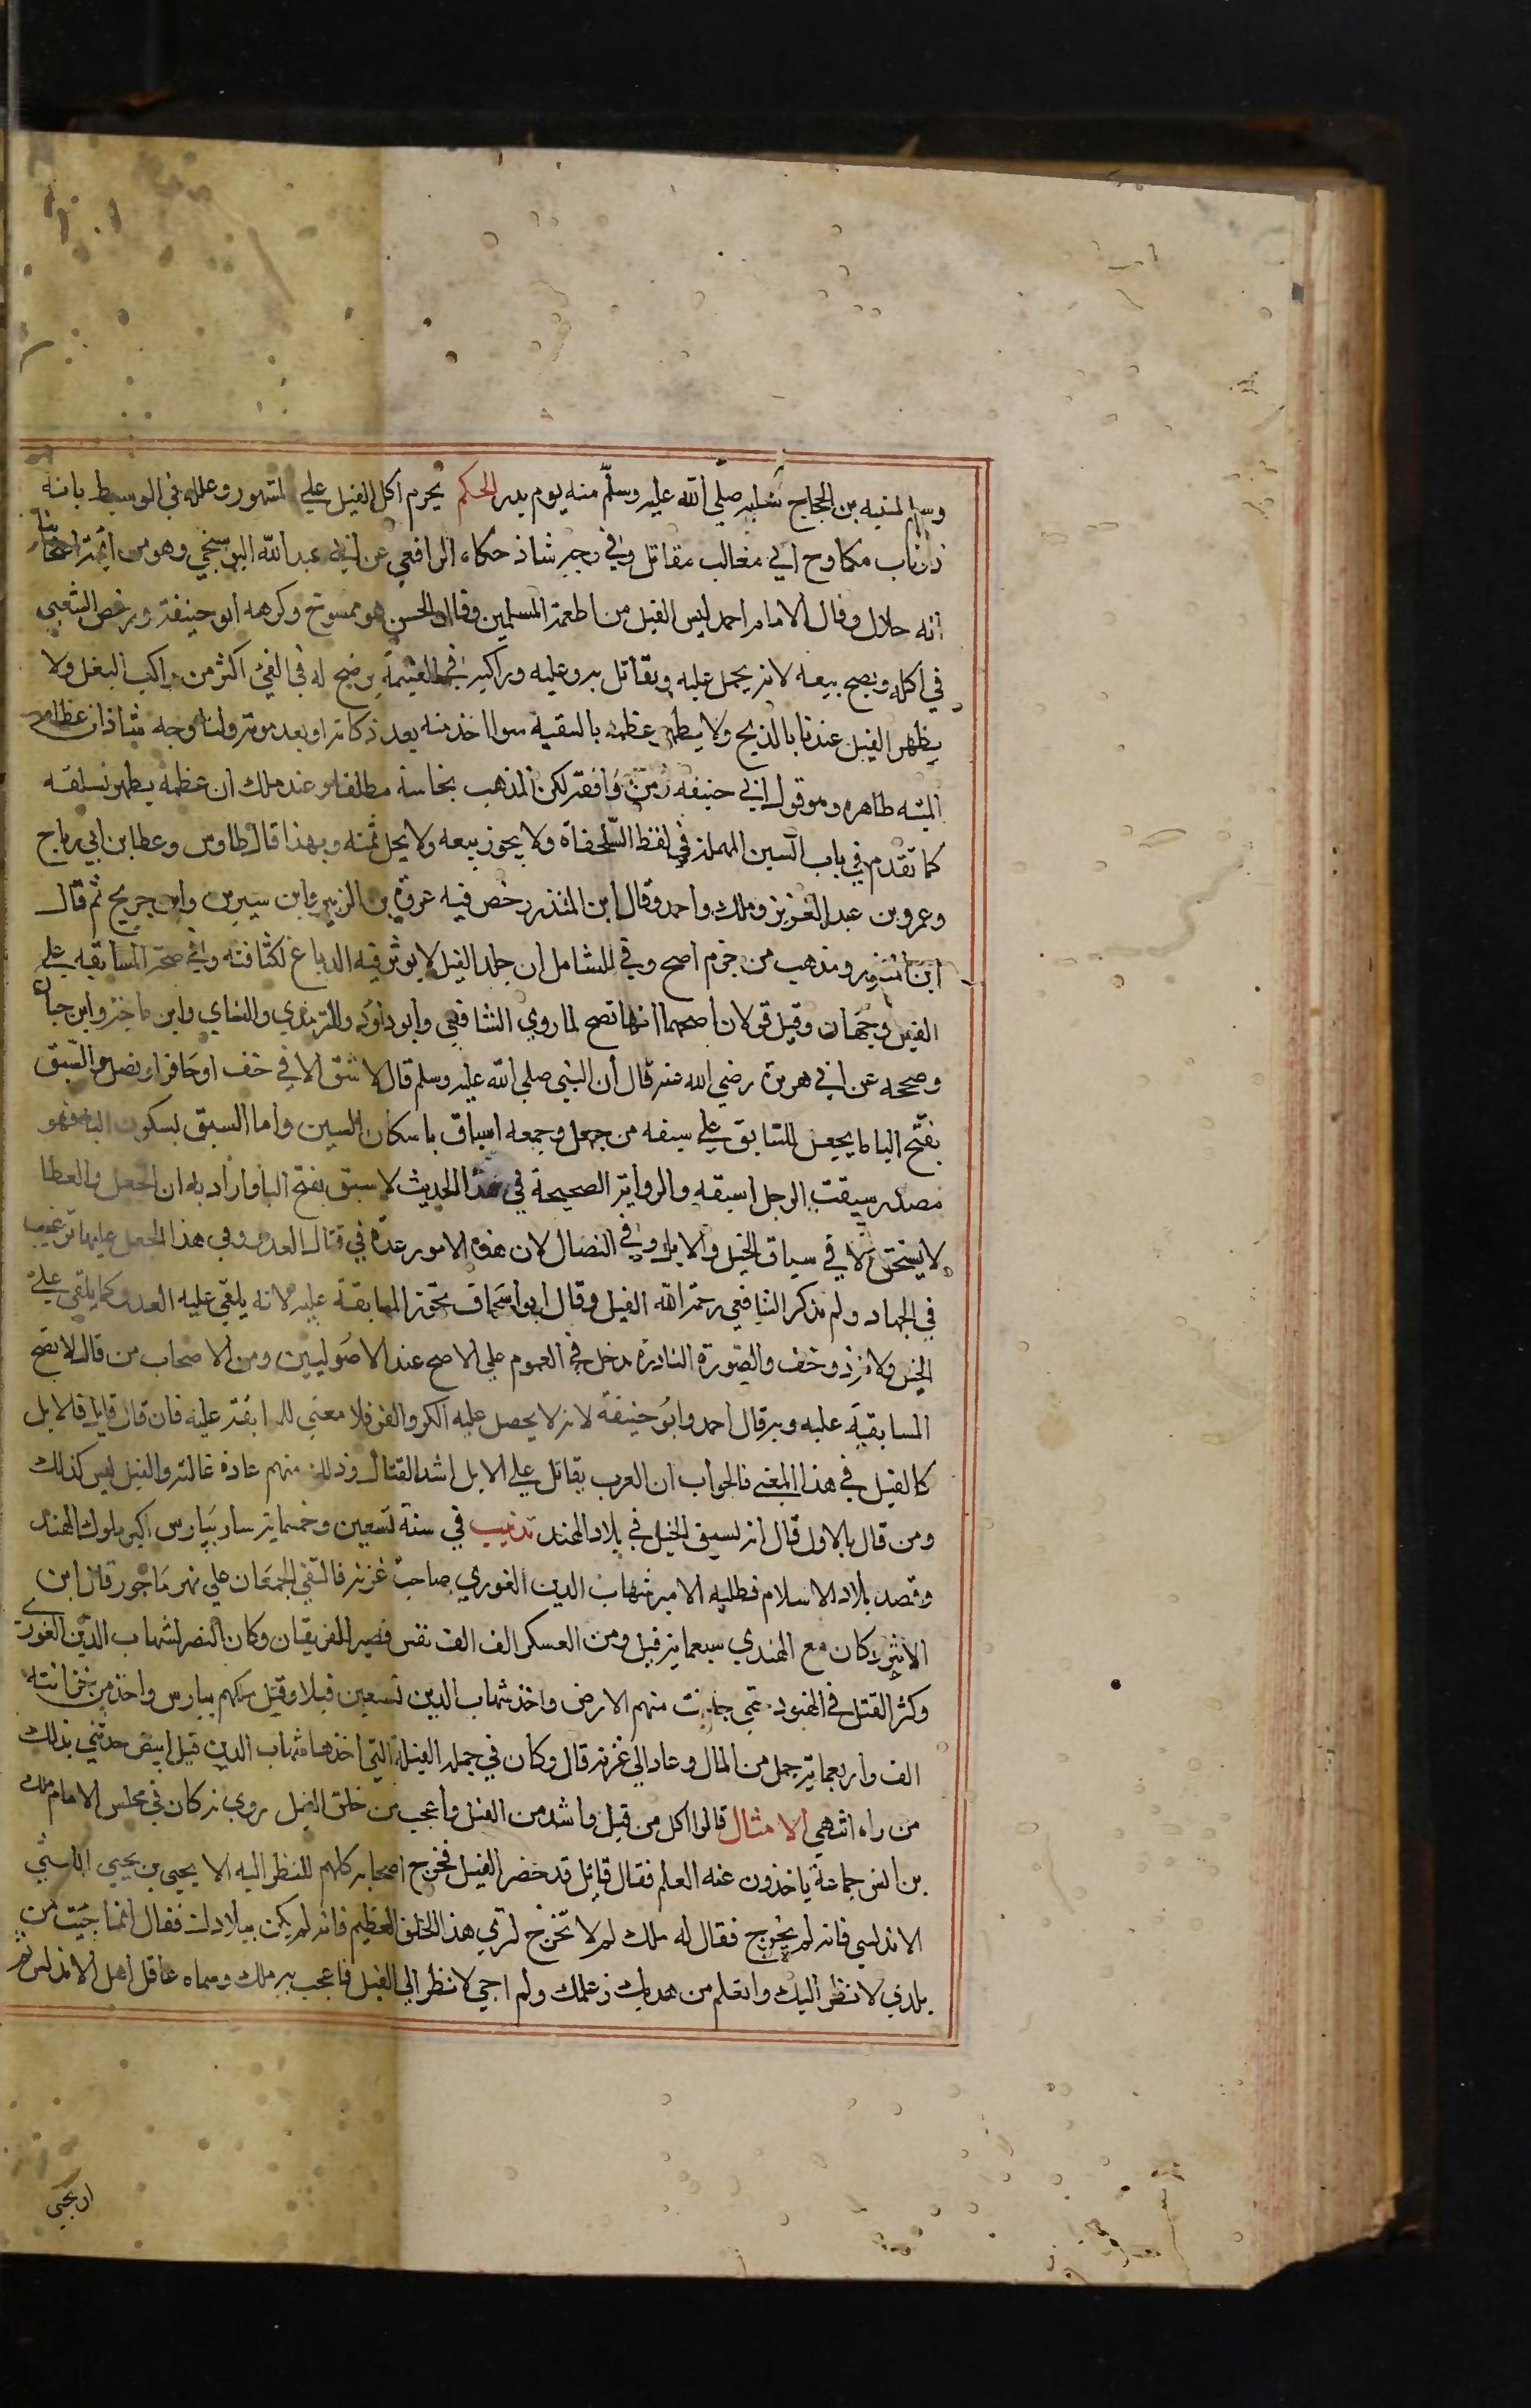 وسلم لمنبه بن الحجاج سلبه صلي الله عليه وسلم منه يوم بدر الحكم يحرم اكل الفيل علي المشهور وعلله في الوسيط بانه
ذو ناب مكاوح اي مغالب مقاتل وفي وجه شاذ حكاه الرافعي عن ابي عبد الله البوسنجي وهو من ائمة اصحابنا
انه حلال وقال الامام احمد ليس الفيل من اطعمة المسلمين وقال الحسن هو ممسوخ وكرهه ابو حنيفة ورخص الشعبي
في اكله ويصح بيعه لانه يحمل عليه ويقاتل به وعليه وراكبه في الغنيمة يرضخ له في الفئ اكثر من راكب البغل ولا
يطهر الفيل عندنا بالذبح ولا يطهر عظمه بالتنقية سوا اخذ منه بعد ذكاته او بعد موته ولنا وجه شاذ ان عظام
الميته طاهره وهو قول ابي حنيفه ومن وافقه لكن المذهب نجاسة مطلقا وعند ملك ان عظمه يطهر بسلقه
كما تقدم في باب السين المهملة في لفظ السلحفاة ولا يجوز بيعه ولا يحل ثمنه وبهذا قال طاوس وعطا بن ابي رباح
وعمرو بن عبد العزيز وملك واحمد وقال ابن المنذر رخص فيه عروة بن الزبير وابن سيرين وابن جريج ثم قال
ابن المنذر ومذهب من حرم اصح وفي الشامل ان جلد الفيل لا يوثر فيه الدباغ لكثافته وفي صحة المسابقه علي
الفيل وجهان وقيل قولان اصحهما انها تصح لما روي الشافعي وابو داود والترمذي والنساي وابن ماجه وابن حبان
وصححه عن ابي هريرة رضي الله عنه قال ان النبي صلي الله عليه وسلم قال لا سبق الا في خف او حافر او نصل والسبق
بفتح البا ما يجعل للسابق علي سبقه من جعل وجمعه اسباق باسكان السين واما السبق بسكون البا فهو
مصدر سبقت الرجل اسبقه والرواية الصحيحة في هذا الحديث لا سبق بفتح البا واراد به ان الجعل والعطا
لا يستحق الا في سباق الخيل والابل وفي النضال لان هذه الامور عدة في قتال العدو وفي هذا الجعل عليها ترغيب
في الجهاد ولم يذكر الشافعي رحمة الله الفيل وقال ابو اسحاق تجوز المسابقة عليه لانه يلقي عليه العدو كما يلقي علي
الخيل ولانه ذو خف والصورة النادرة تدخل في العموم علي الاصح عند الاصوليين ومن الاصحاب من قال لا تصح
المسابقة عليه وبه قال احمد وابو حنيفة لانه لا يحصل عليه الكر والفر فلا معني للمسابقة عليه فان قال قايل فالابل
كالفيل في هذا المعني فالجواب ان العرب يقاتل علي الابل اشد القتال وذلك منهم عادة غالبه والفيل ليس كذلك
ومن قال بالاول قال انه يسبق الخيل في بلاد الهند تذنيب في سنة تسعين وخمسماية سار بيارس اكبر ملوك الهند
وقصد بلاد الاسلام فطلبه الامير شهاب الدين الغوري صاحب غزنه فالتقي الجمعان علي نهر ماجور قال ابن
الاثير وكان مع الهندي سبعماية فيل ومن العسكر الف الف نفس فصبر الفريقان وكان النصر لشهاب الدين الغوري
وكثر القتل في الهنود حتي جافت منهم الارض واخذ شهاب الدين تسعين فيلا وقتل ملكهم بيارس واخذ من خزانته
الف واربعماية حمل من المال وعاد الي غزنه قال وكان في جملة الفيلة التي اخذها شهاب الدين فيل ابيض حدثني بذلك
من راه انتهي الامثال قالوا اكل من فيل واشد من الفيل واعجب من خلق الفيل روي انه كان في مجلس الامام ملك
بن انس جماعة ياخذون عنه العلم فقال قايل قد حضر الفيل فخرج اصحابه كلهم للنظر اليه الا يحيي بن يحيي الليثي
الاندلسي فانه لم يخرج فقال له ملك لم لا تخرج لتري هذا الخلق العظيم فانه لم يكن ببلادك فقال انما جيت من
بلدي لانظر اليك واتعلم من هديك وعلمك ولم اجي لانظر الي الفيل فاعجب به ملك وسماه عاقل اهل الاندلس ثم
ان يحيي